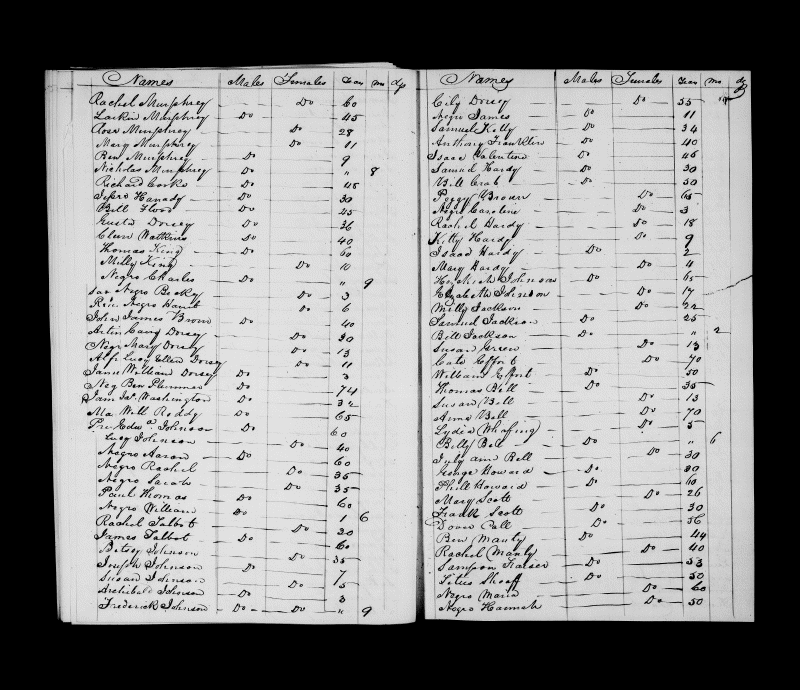 Names Males Females Years ms dys
Rachel Murphrey Do 60
Larkin Murphrey Do 45
Rose Murphrey Do 28
Mary Murphrey Do 11
Ben Murphrey Do 9
Nicholas Murphrey Do " 8
Richard Cooke Do 48
Hanady Do 30
Bill Flood Do 45
Gusta Dorsey Do 26
Watkins Do 40
Thomas King Do 60
Milly King Do 10
Negro Charles Do " 9
Negro Becky Do 3
Negro Do 6
John James Brown Do 40
Dorsey Do 30
Negr Mary Dorsey Do 13
Lucy Ellen Dorsey Do 11
William Dorsey Do 3
Neg Ben Plummer Do 74
Washington Do
Will Roddy Do 65
Johnson Do 60
Lucy Johnson Do 40
Negro Aaron Do 60
Negro Rachel Do 35
Negro Sarah Do 35
Paul Thomas Do 60
Negro William Do 1 6
Rachel Talbot Do 20
James Talbot Do 60
Betsy Johnson Do 35
Joseph Johnson Do 7
Susan Johnson Do 5
Archibald Johnson Do 3
Frederick Johnson Do Do " 9
Names Males Females Years ms dys
Dorsey Do 55
Negro James Do 11
Samuel Kelly Do 34
Anthony Franklin Do 40
Isaac Valentine Do 46
Samuel Hardy Do 30
Bill Crab Do 50
Peggy Brown Do 65
Negro Caroline Do 3
Rachel Hardy Do 18
Kitty Hardy Do 9
Isaac Hardy Do 2
Mary Hardy Do 4
Johnson Do 65
Elizabeth Johnson Do 17
Milly Jackson Do 22
Samuel Jackson Do 25
Bill Jackson Do " 2
Susan Green Do 13
Cato Do 70
William Do 50
Thomas Bell Do 35
Susan Bell Do 13
Anna Bell Do 70
Lydia Do 5
Billy Bell Do " 6
July ann Bell Do 30
George Howard Do 30
Phill Howard Do 60
Mary Scott Do 26
Frank Scott Do 30
Do 56
Ben Manly Do 44
Rachel Manly Do 40
Sampson Do 53
Titus Do 50
Negro Maria Do 60
Negro Hannah Do 50